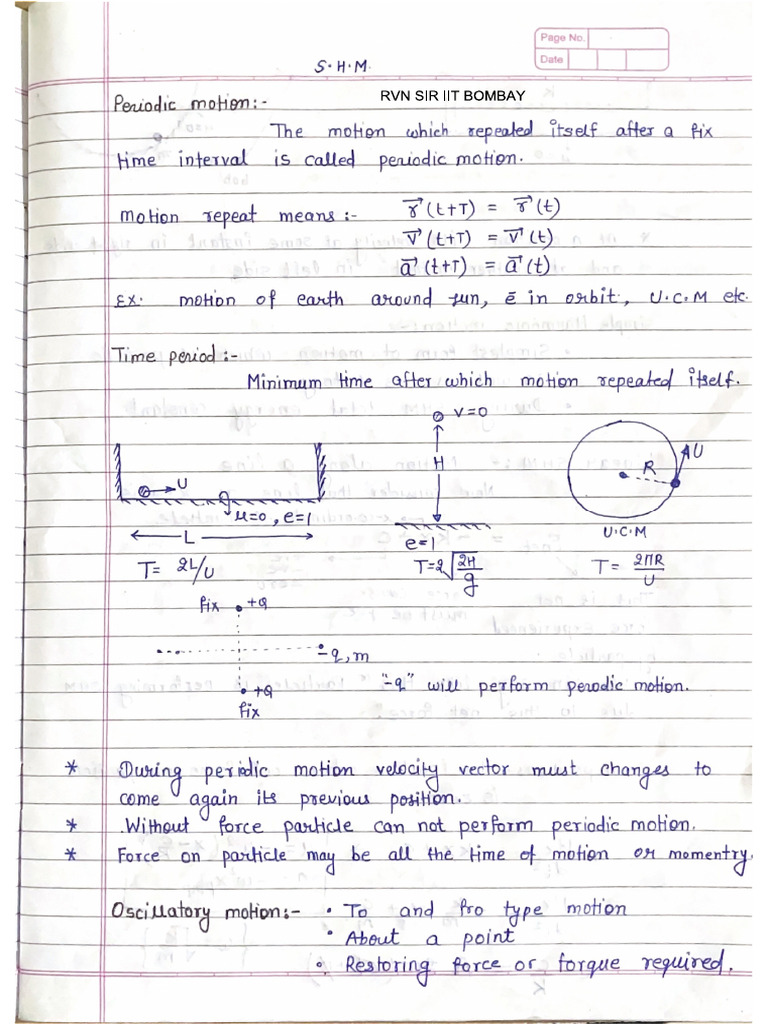 Page No.
Date
S.H.M.
RVN SIR IIT BOMBAY
Periodic motion:-
The motion which repeated itself after a fix
time interval is called periodic motion.
motion repeat means :- r⃗ (t+T) = r⃗ (t)
v⃗ (t+T) = v⃗ (t)
a⃗ (t+T) = a⃗ (t)
Ex. motion of earth around sun, ē in orbit, U.C.M etc.
Time period :-
Minimum time after which motion repeated itself.
v=0
U
H
R
U
μ=0, e=1
L
e=1
U.C.M
T= 2L/U
T=2√(2H/g)
T= 2πR/U
fix +Q
-q, m
+Q
fix
"-q" will perform perodic motion.
* During periodic motion velocity vector must changes to
come again its previous position.
* Without force particle can not perform periodic motion.
* Force on particle may be all the time of motion or momentry.
Oscillatory motion:- • To and fro type motion
• About a point
• Restoring force or torque required.